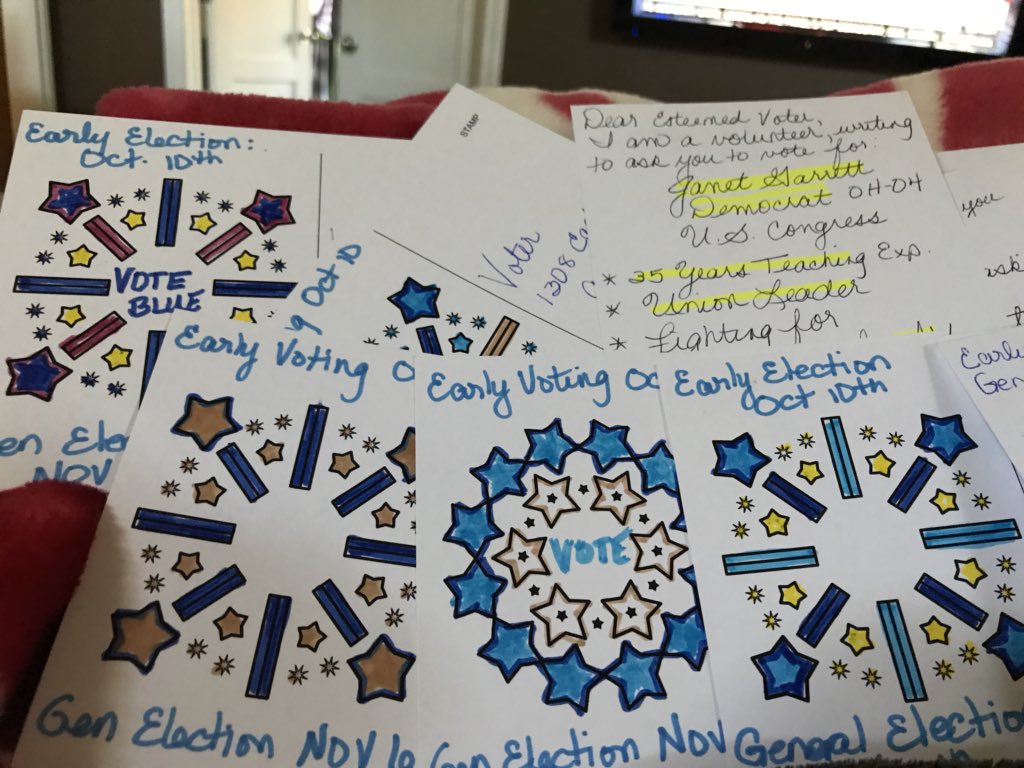 Early Election:
Oct. 10th
VOTE
BLUE
Gen Ele
NOV
STAMP
Oct 10
Voter
1308 Ca
Dear Esteemed Voter,
I am a volunteer, writing
to ask you to vote for:
Janet Garrett
Democrat OH-04
U.S. Congress
* 35 Years Teaching Exp.
* Union Leader
* Fighting for
you
Early Voting O
Gen Election NOV 6
Early Voting Oc
VOTE
Gen Election NOV
Early Election
Oct 10th
General Electio
Early
Gen